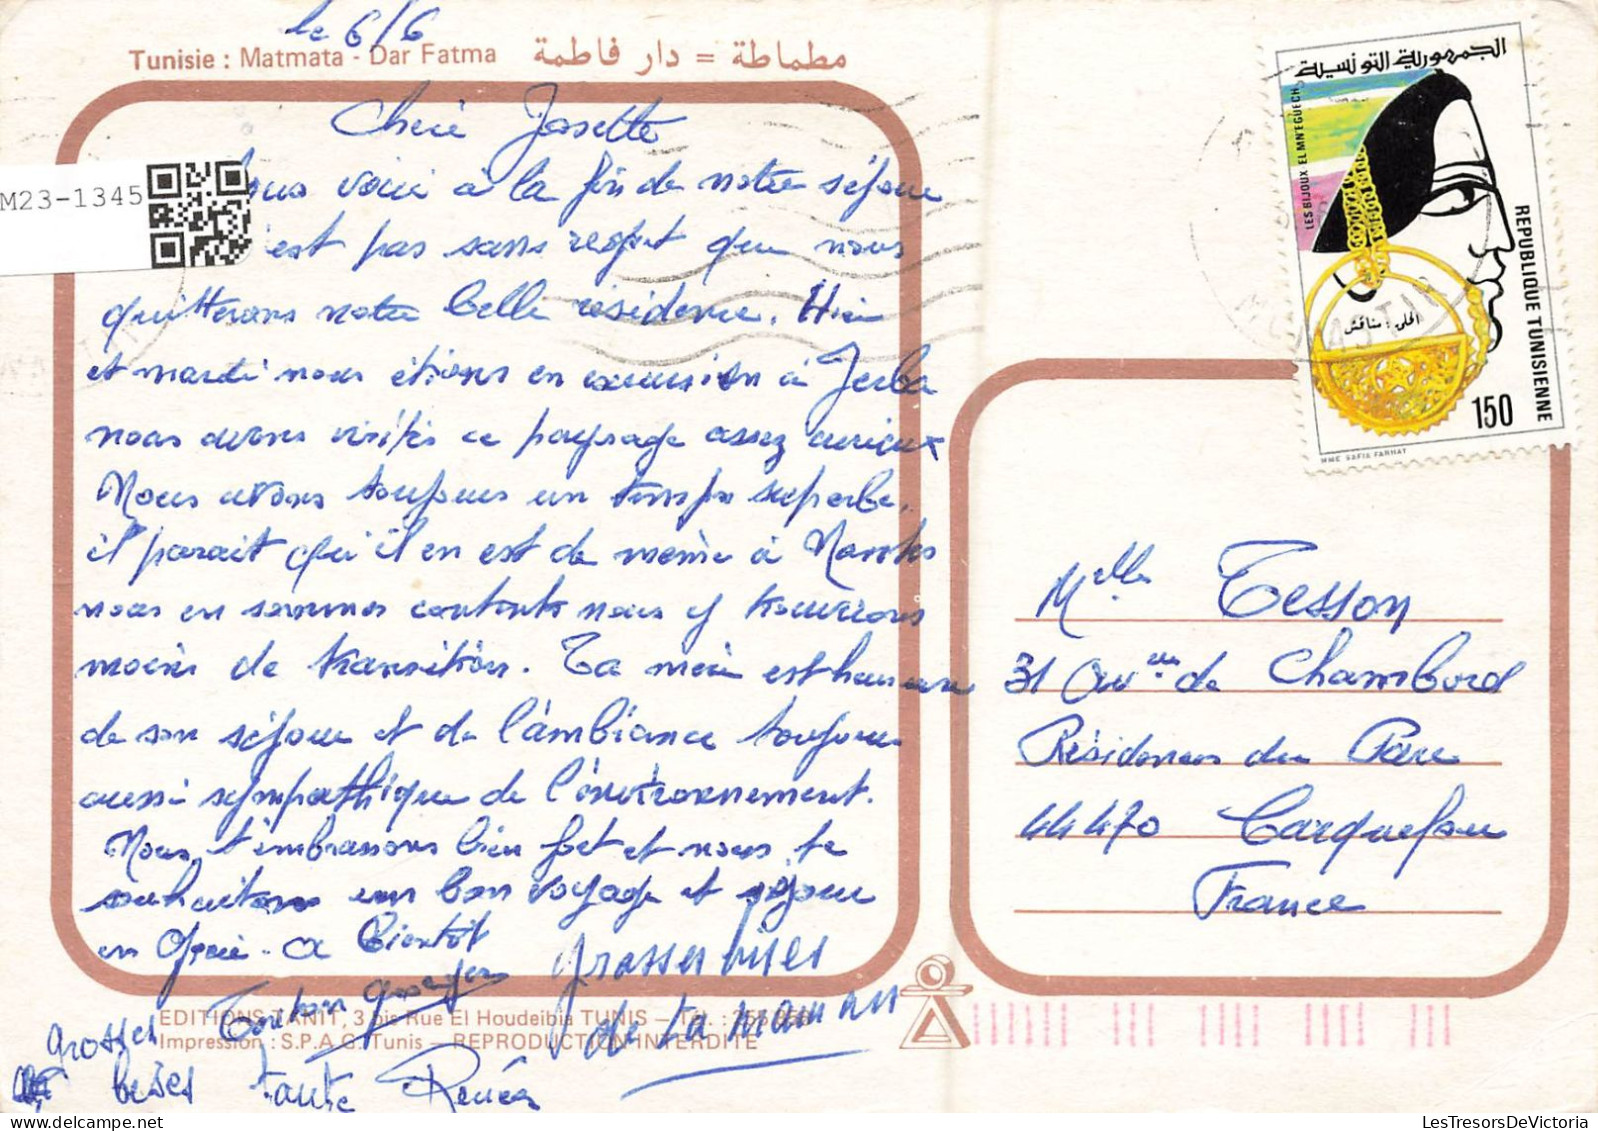 le 6/6
Tunisie : Matmata - Dar Fatma مطماطة = دار فاطمة
Chère Josette
M23-1345
nous voici à la fin de notre séjour
c'est pas sans regret que nous
quitterons notre belle résidence. Hier
et mardi nous étions en excursion à Jerba
nous avons visités ce paysage assez curieux
Nous avons toujours un temps superbe,
il parait qu'il en est de même à Nantes
nous en sommes contents nous y trouverons
moins de transition. Ta mère est heureuse
de son séjour et de l'ambiance toujours
aussi sympathique de l'environnement.
Nous t'embrassons bien fort et nous te
souhaitons un bon voyage et séjour
en Grèce - a bientôt
Tonton Georges
grosses bises
de ta maman
grosses
bises tante Renée
EDITIONS TANIT, 3 bis Rue El Houdeibia TUNIS - Tél. :
Impression : S.P.A.G. Tunis - REPRODUCTION INTERDITE
الجمهورية التونسية
LES BIJOUX EL MN'EGUECH
REPUBLIQUE TUNISIENNE
الحلي : مناقش
150
MME SAFIA FARHAT
Melle Tesson
31 Avenue de Chambord
Résidences du Parc
44470 Carquefou
France
LesTresorsDeVictoria.com